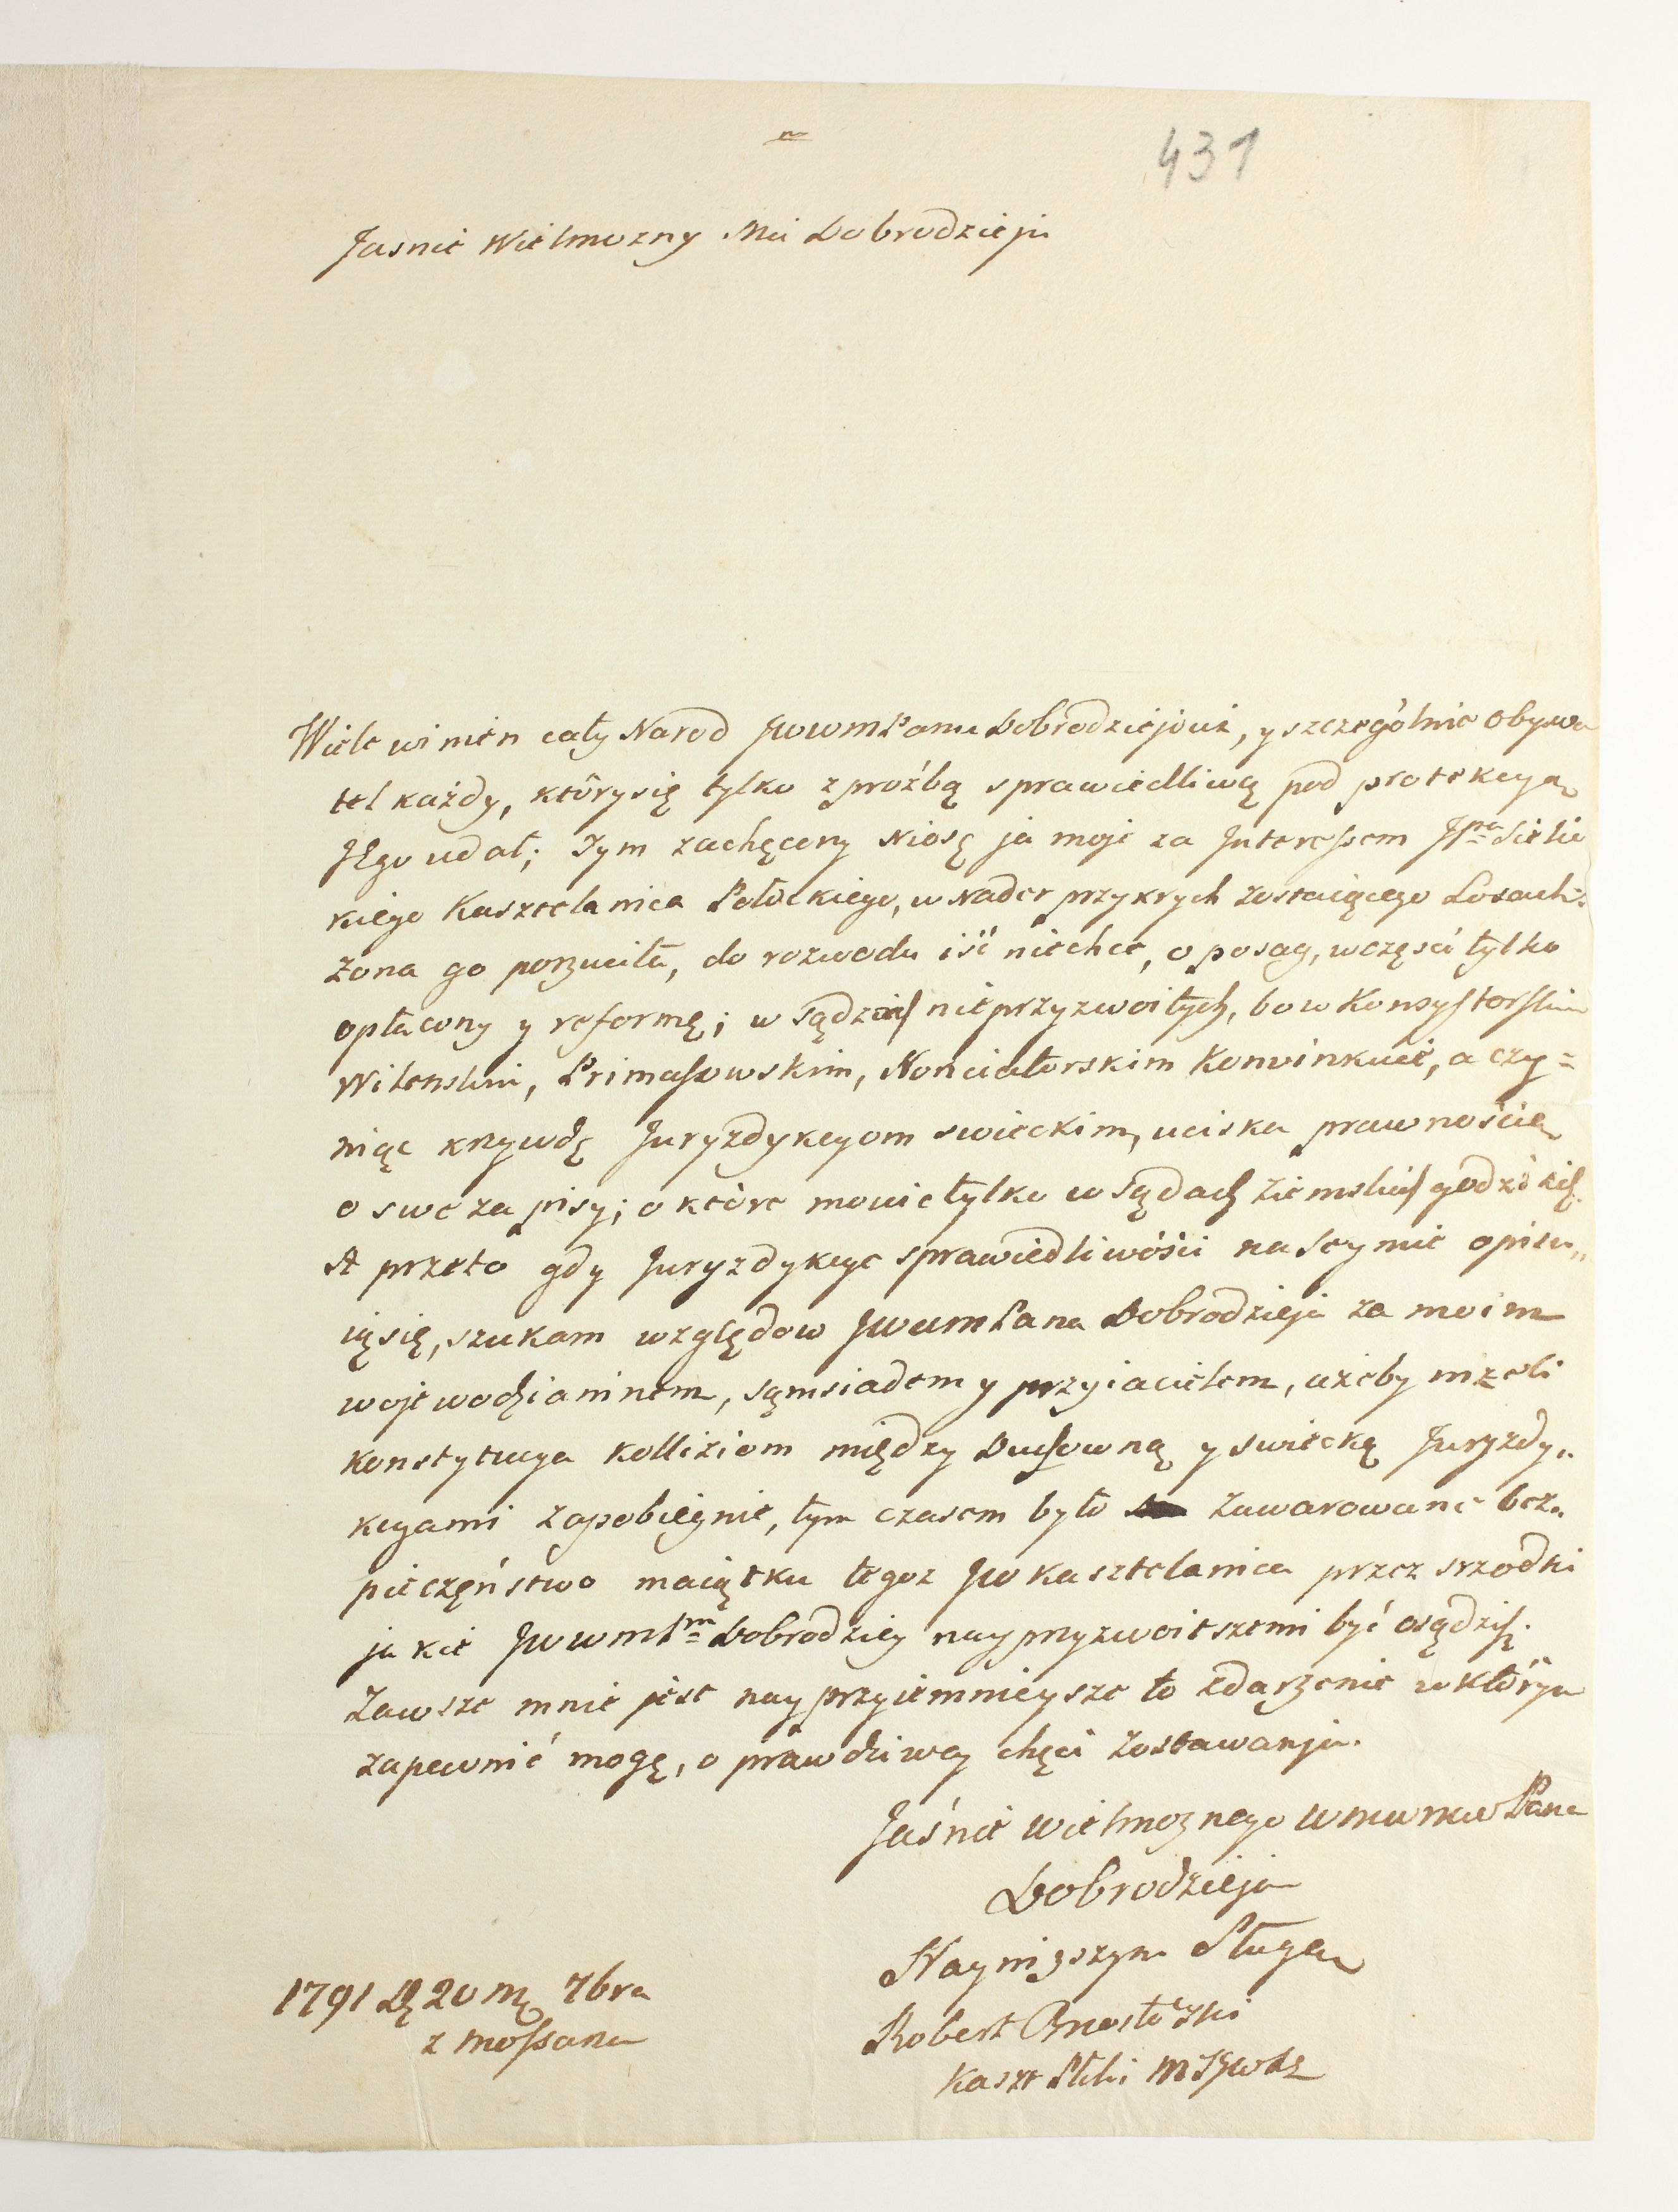 431
Jasnie Wielmozny Mci Dobrodzieju
Wiele winien cały Narod JwwmPanu Dobrodziejowi, y szczegòlnie obywa
tel każdy, ktôry się tylko z proźbą sprawiedliwą pod protekcyą
JEgo udał; Tym zachęcony Niosę ja moje za Interessem JPa Sielic
kiego Kasztelanica Połockiego, w Nader przykrych zostaiącego Losach.
Zona go porzuciła, do rozwodu iść niechce, o posag, wczęsci tylko
opłacony y reformę; w sądziach nieprzyzwoitych, bo w Konsystorskim
Wilenskim, Primasowskim, Nonciatorskim Konwinkuie, a czy=
niąc krzywdę Juryzdykcyom swieckim, uciska prawnością
o swe zapisy; o które mowic tylko w sądach ziemskich godzi się.
A przeto gdy Juryzdykcye sprawiedliwości na seymie opisu„
ią się, szukam względow JwwmPana Dobrodzieja za moim
wojewodzianinem, sąmsiadem y przyiacielem, ażeby nizeli
Konstytucya kolliziom między Duchowną y swiecką Juryzdy„
kcyami zapobiegnie, tym czasem było zawarowane bez„
pieczęństwo maiątku tegoz Jw kasztelanica przez srzodki
jakie JwwmPn Dobrodziey nayprzyzwoitszemi być osądzisz.
Zawsze mnie jest nayprzyiemnieysze to zdarzenie w którym
zapewnić mogę, o prawdziwey chęci zostawanja.
Jaśnie wielmoznego Pana
Dobrodzieja
Nayniższym Sługą
Robert Brzostowski
Kaszt
1791 D 20 M 7bra
z Mossarza